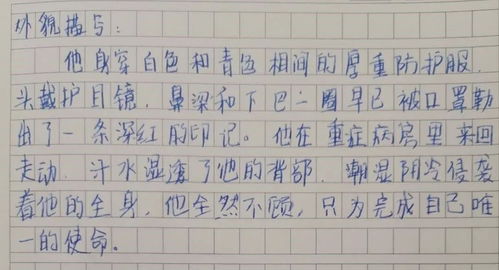 外貌描写：
他身穿白色和青色相间的厚重防护服，
头戴护目镜，鼻梁和下巴一圈早已被口罩勒
出了一条深红的印记。他在重症病房里来回
走动，汗水湿透了他的背部，潮湿阴冷侵袭
着他的全身，他全然不顾，只为完成自己唯
一的使命。